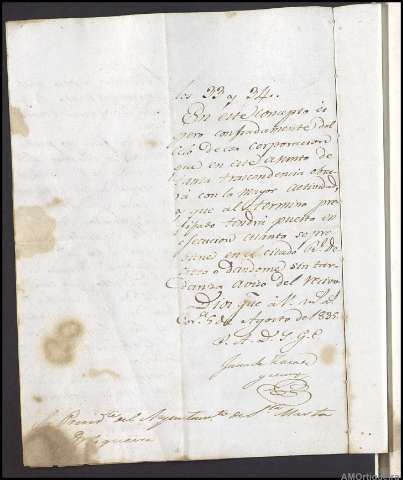 los 33 y 34.
En este concepto es
pero confiadamente del
celo de esa corporacion
que en este asunto de
tanta trascendencia obra
rá con la mayor actividad
y que al termino pre
fijado tendrá puesto en
ejecucion cuanto se pre
viene en el citado Rl. De
creto dandome sin tar
danza aviso del
Dios gue. á V. ms. as.
Cor.ª 5 de Agosto de 1835
P. A. D. S. G. C.
Juan de
Presid.te del Ayuntam.to de S.ta Marta
Ortigueira
AMOrtigueira